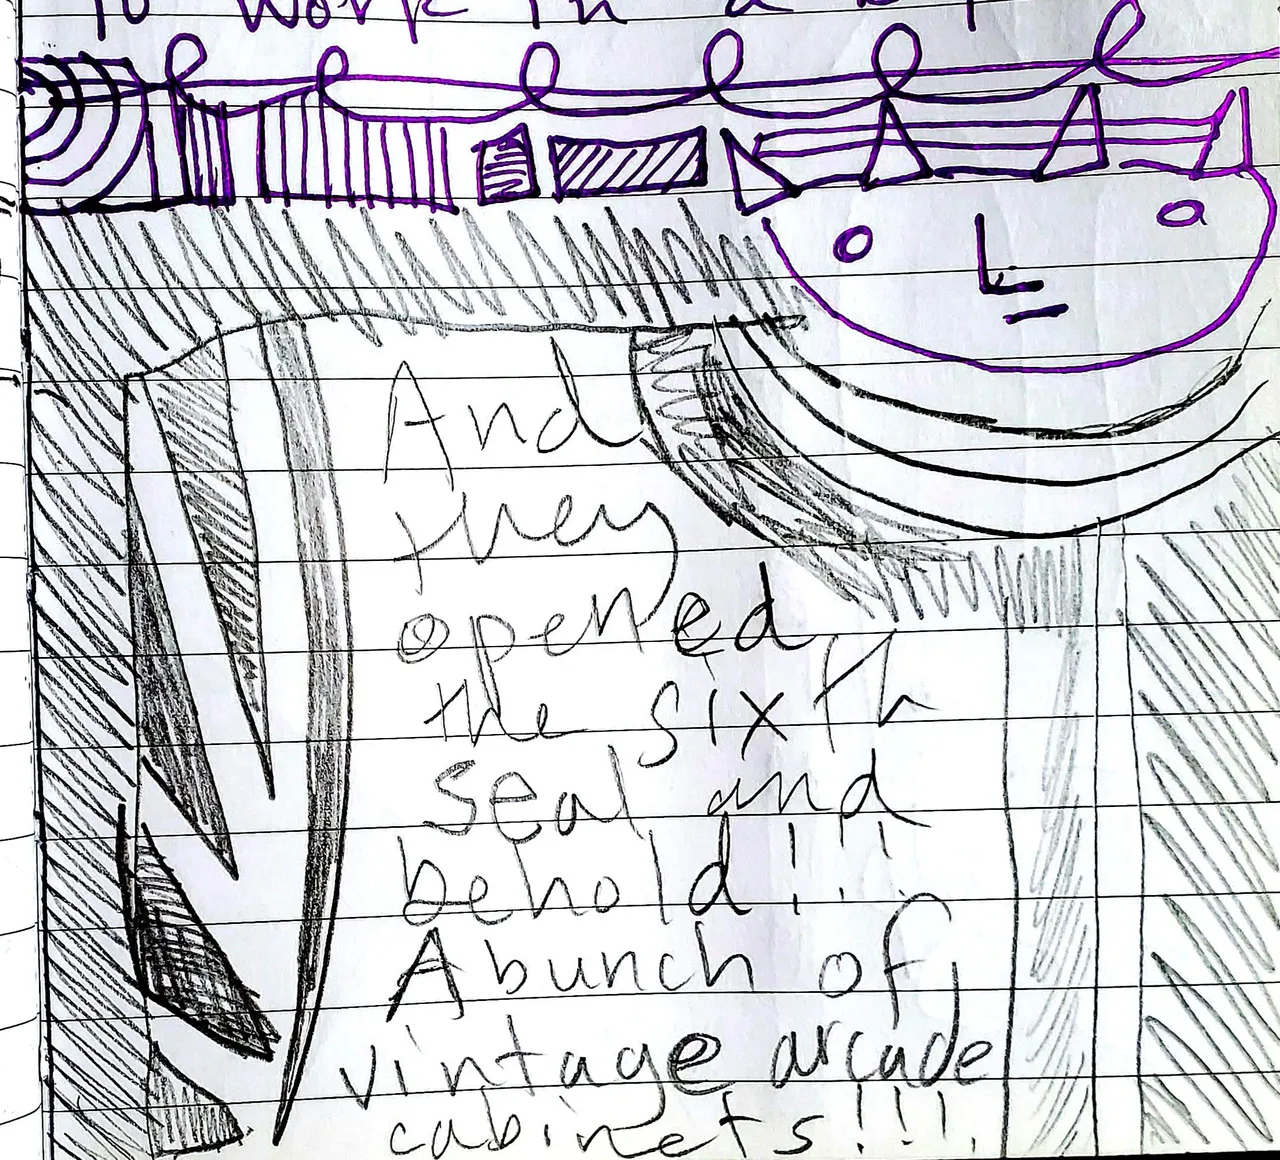 to work in a
And
they
opened
the sixth
seal and
behold!!!
A bunch of
vintage arcade
cabinets!!!